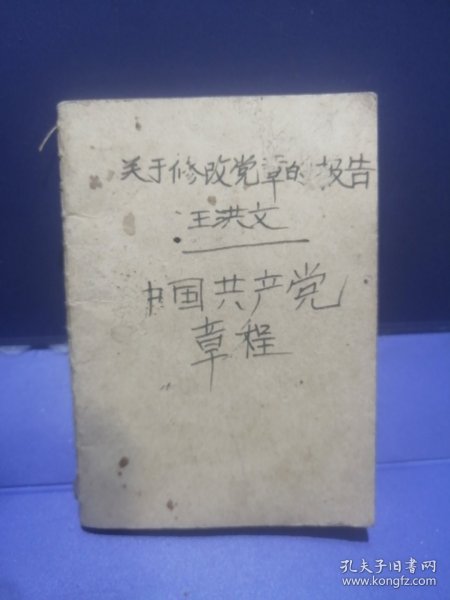 关于修改党章的报告
王洪文
中国共产党
章程
孔夫子旧书网
www.kongfz.com